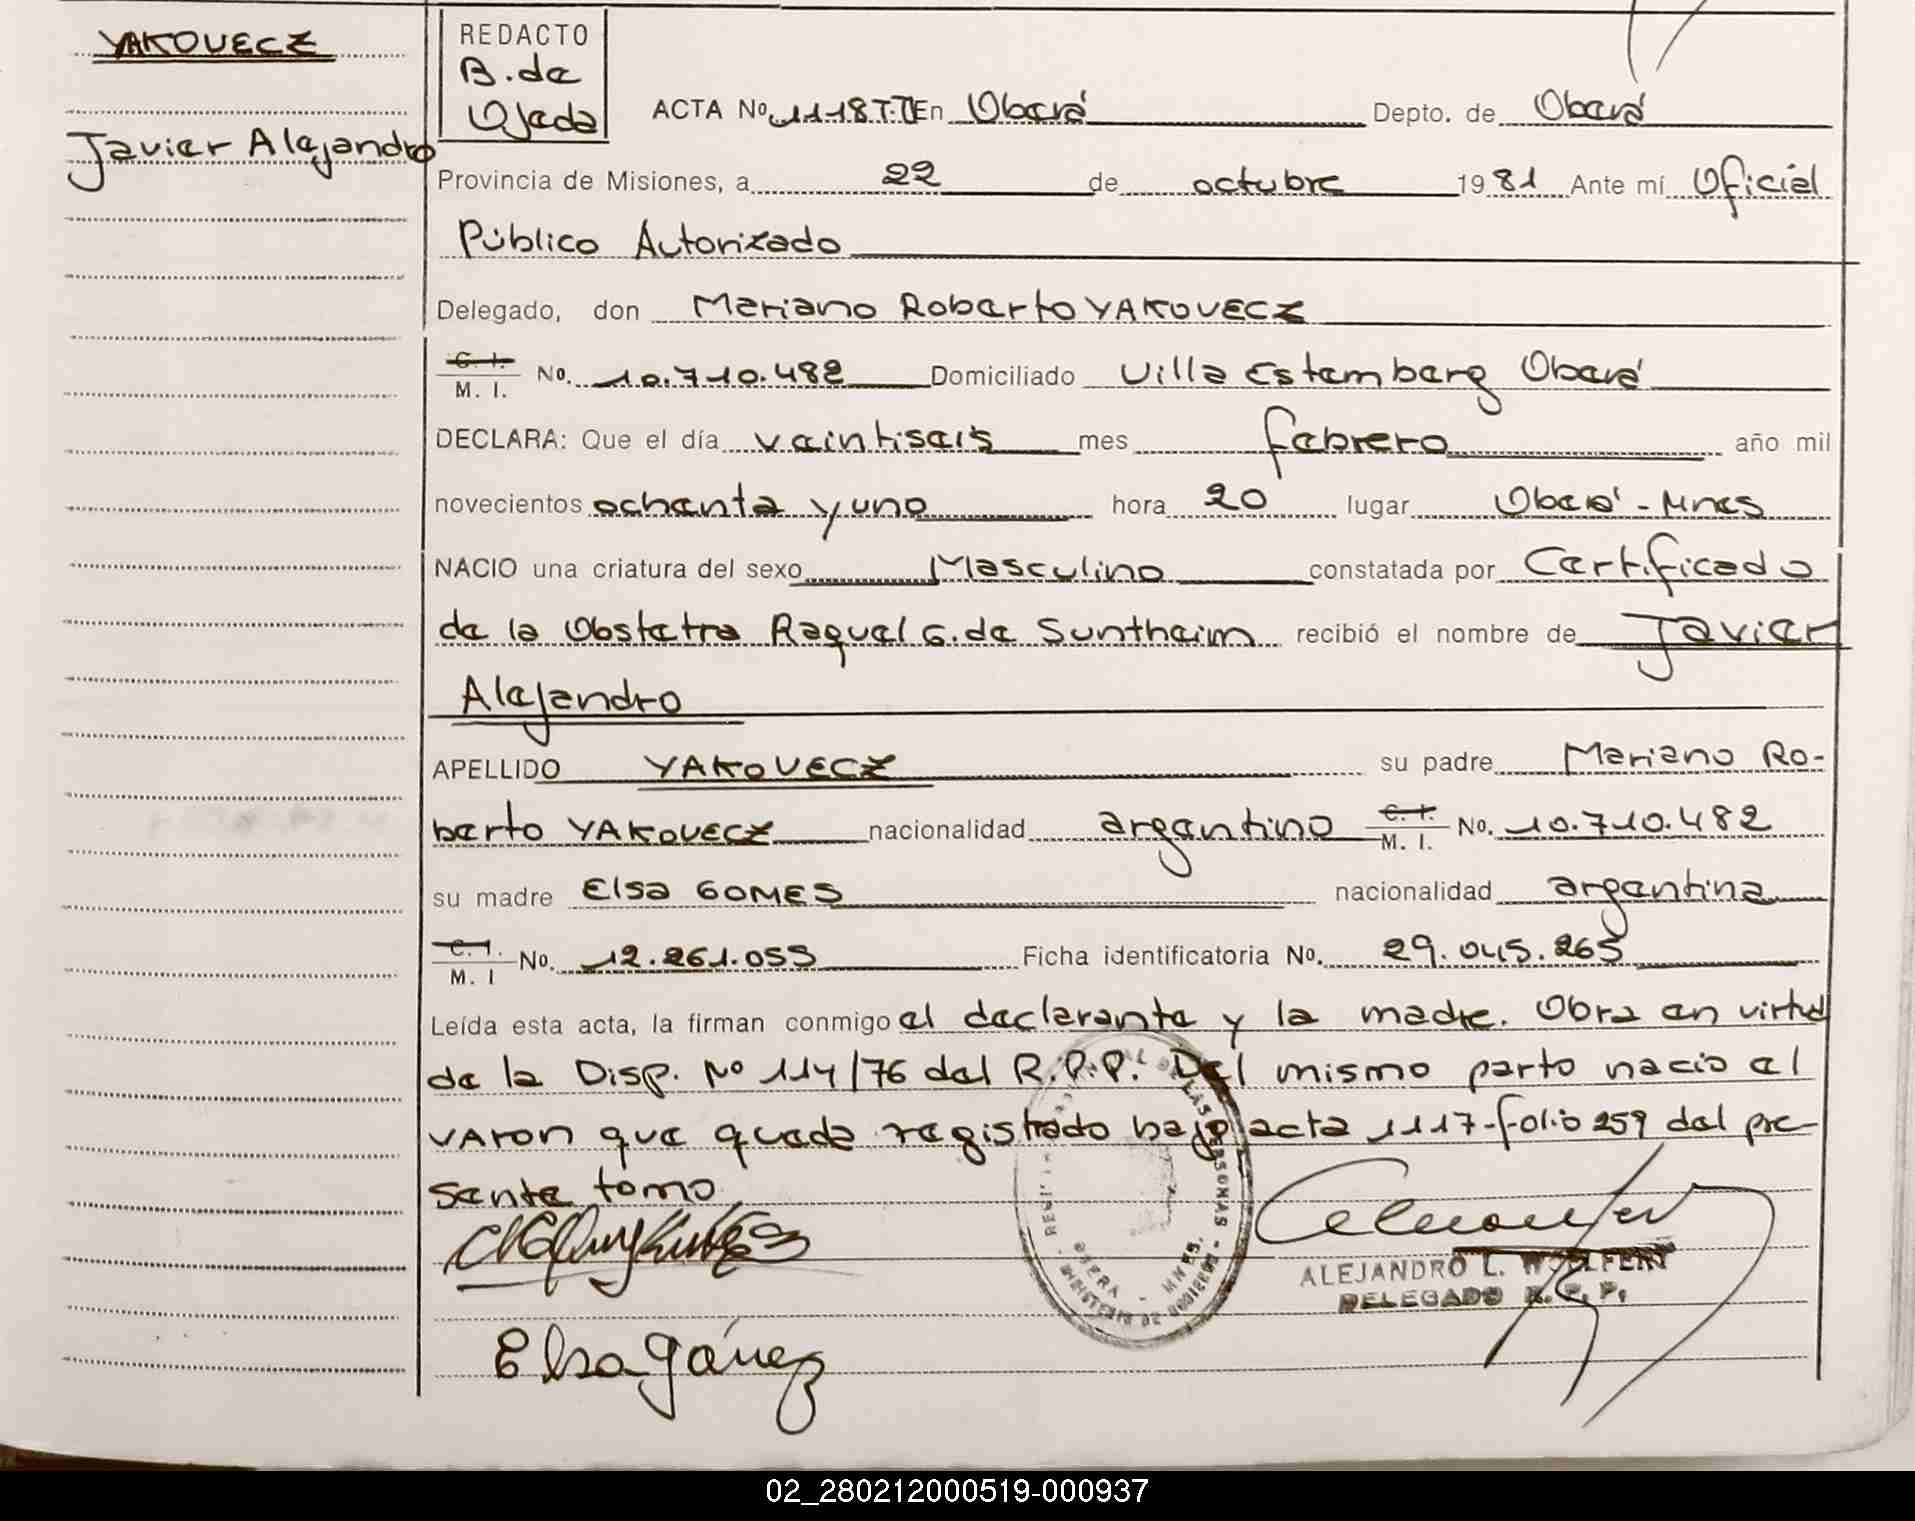 YAKOVECZ
Javier Alejandro
REDACTO
B. de
Ojeda
ACTA No. 1118 T.II En Oberá Depto. de Oberá
Provincia de Misiones, a 22 de octubre 1981 Ante mí Oficial
Público Autorizado
Delegado, don Mariano Roberto YAKOVECZ
C. I.
M. I. No. 10.710.482 Domiciliado Villa Estemberg Oberá
DECLARA: Que el día veintiseis mes febrero año mil
novecientos ochenta y uno hora 20 lugar Oberá - Mnes
NACIO una criatura del sexo Masculino constatada por Certificado
de la Obstetra Raquel G. de Suntheim recibió el nombre de Javier
Alejandro
APELLIDO YAKOVECZ su padre Mariano Ro-
berto YAKOVECZ nacionalidad argentino C. I. M. I. No. 10.710.482
su madre Elsa GOMES nacionalidad argentina
C. I.
M. I No. 12.261.053 Ficha identificatoria No. 29.045.265
Leída esta acta, la firman conmigo el declarante y la madre. Obra en virtud
de la Disp. Nº 114/76 del R.P.P. Del mismo parto nacio el
varon que queda registrado bajo acta 1117-folio 259 del pre-
sente tomo
ALEJANDRO L. WOLFERT
DELEGADO R. P. P.
OBERA - MNES.
Elsa Gómez
02_280212000519-000937